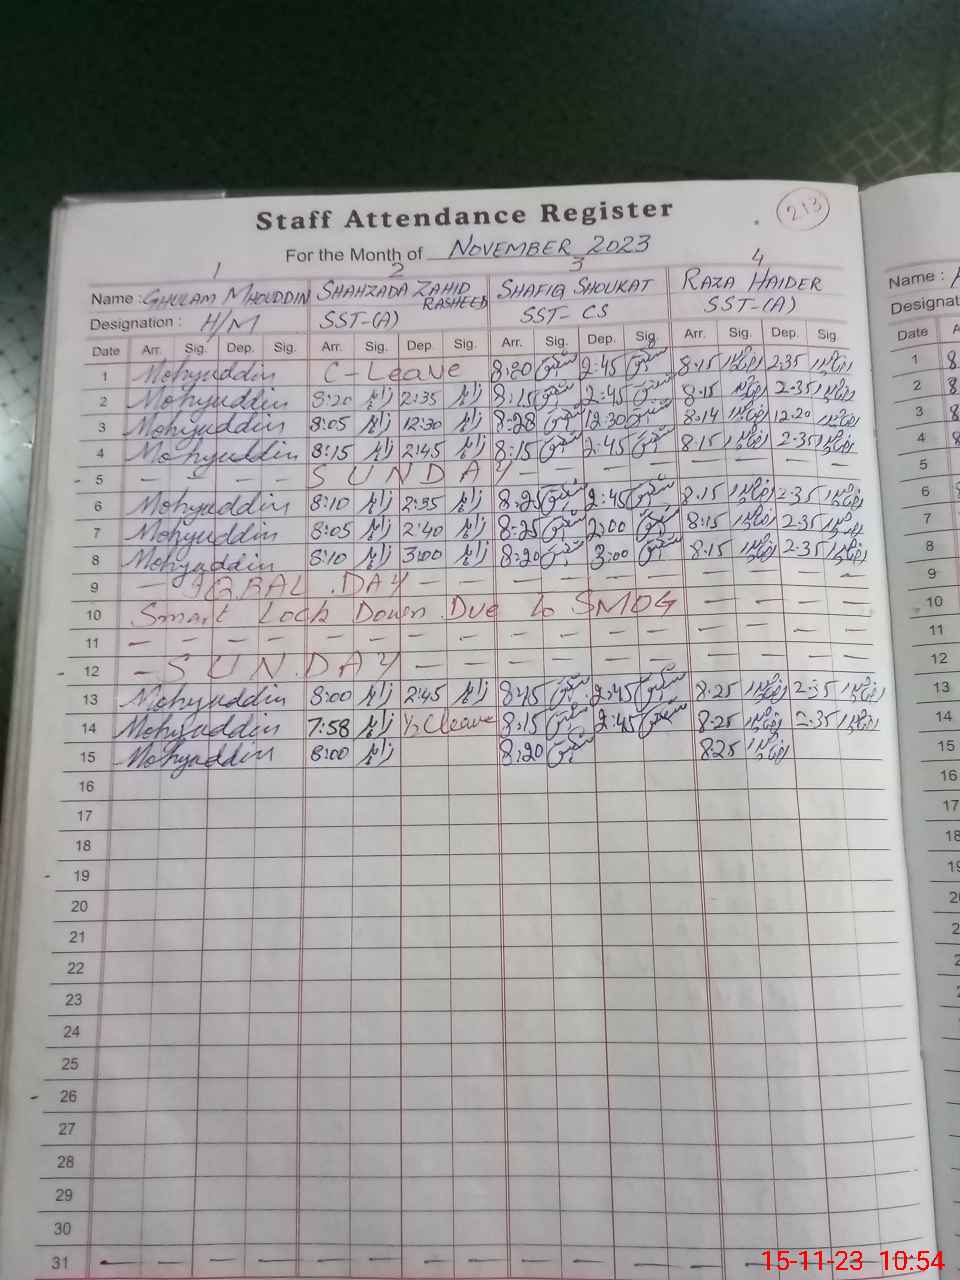 Staff Attendance Register
213
For the Month of NOVEMBER 2023
1 2 3 4
Name : GHULAM MHOUDDIN SHAHZADA ZAHID RASHEED SHAFIQ SHOUKAT RAZA HAIDER Name :
Designation : H/M SST-(A) SST- CS SST-(A)
Date Arr. Sig. Dep. Sig. Arr. Sig. Dep. Sig. Arr. Sig. Dep. Sig. Arr. Sig. Dep. Sig Date
1 Mohyuddin C-Leave 8:20 شفیق 2:45 شفیق 8.15 2.35 1
2 Mohyuddin 8:20 زاہد 2:35 زاہد 8:15 شفیق 2:45 شفیق 8.15 2.35 2
3 Mohyuddin 8:05 زاہد 12:30 زاہد 8:28 شفیق 12:30 شفیق 8.14 12.20 3
4 Mohyuddin 8:15 زاہد 2:45 زاہد 8:15 شفیق 2:45 شفیق 8.15 2.35 4
5 - - - - SUNDAY - - - - - - - 5
6 Mohyuddin 8:10 زاہد 2:35 زاہد 8:25 شفیق 2:45 شفیق 8.15 2.35 6
7 Mohyuddin 8:05 زاہد 2:40 زاہد 8:25 شفیق 2:00 شفیق 8.15 2.35 7
8 Mohyuddin 8:10 زاہد 3:00 زاہد 8:20 شفیق 3:00 شفیق 8.15 2.35 8
9 - IQBAL DAY - - - - - - - - - - 9
10 Smart Lock Down Due to SMOG - - - - 10
11 - - - - - - - - - - - - - - - - 11
12 - SUNDAY - - - - - - - - - - 12
13 Mohyuddin 8:00 زاہد 2:45 زاہد 8:15 شفیق 2:45 شفیق 8.25 2.35 13
14 Mohyuddin 7:58 زاہد ½ Cleave 8:15 شفیق 2:45 شفیق 8.25 2.35 14
15 Mohyuddin 8:00 زاہد 8:20 شفیق 8.25 15
16 16
17 17
18 18
19
20
21
22
23
24
25
26
27
28
29
30
31 - - - - - - - - - - - -
15-11-23 10:54